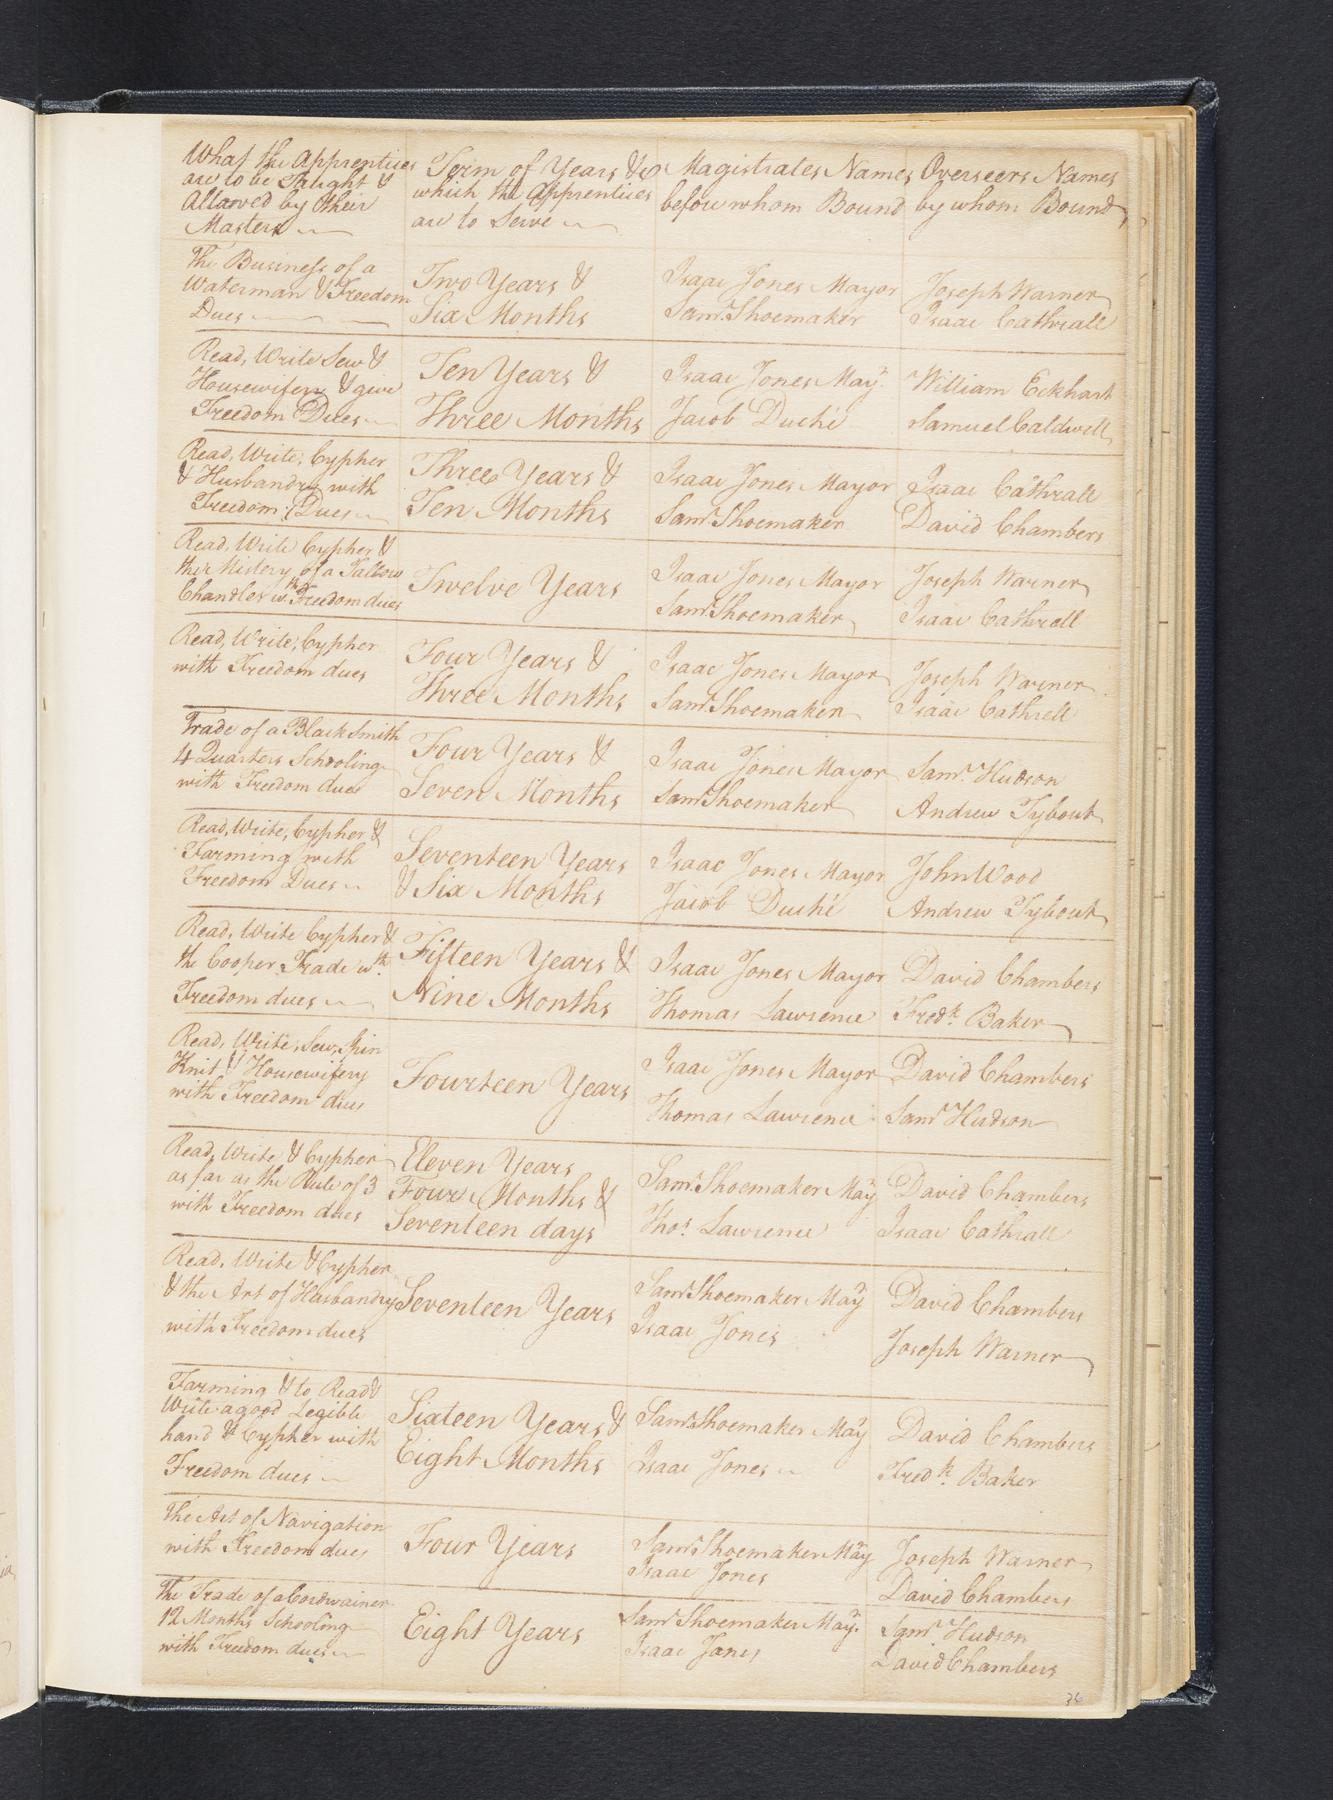 What the Apprentices
are to be Taught &
Allowed by their
Masters
Term of Years &c
which the Apprentices
are to Serve
Magistrates Names
before whom Bound
Overseers Names
by whom Bound
The Business of a
Waterman & Freedom
Dues
Two Years &
Six Months
Isaac Jones Mayor
Saml. Shoemaker
Joseph Warner
Isaac Cathrall
Read, Write Sew &
Housewifery & give
Freedom Dues
Ten Years &
Three Months
Isaac Jones May.r
Jacob Duché
William Eckhart
Samuel Caldwell
Read, Write, Cypher
& Husbandry with
Freedom Dues
Three Years &
Ten Months
Isaac Jones Mayor
Saml. Shoemaker
Isaac Cathrall
David Chambers
Read, Write Cypher &
the Mistery of a Tallow
Chandler wth. Freedom dues
Twelve Years
Isaac Jones Mayor
Saml. Shoemaker
Joseph Warner
Isaac Cathrell
Read, Write, Cypher
with Freedom dues
Four Years &
Three Months
Isaac Jones Mayor
Saml. Shoemaker
Joseph Warner
Isaac Cathrell
Trade of a Black Smith
4 Quarters Schooling
with Freedom dues
Four Years &
Seven Months
Isaac Jones Mayor
Saml Shoemaker
Saml. Hudson
Andrew Tybout
Read, Write, Cypher &
Farming with
Freedom Dues
Seventeen Years
& Six Months
Isaac Jones Mayor
Jacob Duché
John Wood
Andrew Tybout
Read, Write Cypher &
the Cooper Trade wth.
Freedom dues
Fifteen Years &
Nine Months
Isaac Jones Mayor
Thomas Lawrence
David Chambers
Fredk. Baker
Read, Write, Sew, Spin
Knit, & Housewifery
with Freedom dues
Fourteen Years
Isaac Jones Mayor
Thomas Lawrence
David Chambers
Saml Hudson
Read, Write & Cypher
as far as the Rule of 3
with Freedom dues
Eleven Years
Four Months &
Seventeen days
Saml. Shoemaker May.r
Thos. Lawrence
David Chambers
Isaac Cathrall
Read, Write & Cypher
& the Art of Husbandry
with Freedom dues
Seventeen Years
Saml Shoemaker May.r
Isaac Jones
David Chambers
Joseph Warner
Farming & to Read &
Write a good Legible
hand & Cypher with
Freedom dues
Sixteen Years &
Eight Months
Saml Shoemaker May.r
Isaac Jones
David Chambers
Fredk. Baker
The Art of Navigation
with Freedom dues
Four Years
Saml Shoemaker May.r
Isaac Jones
Joseph Warner
David Chambers
The Trade of a Cordwainer
12 Months Schooling
with Freedom dues
Eight Years
Saml Shoemaker May.r
Isaac Jones
Saml Hudson
David Chambers
36